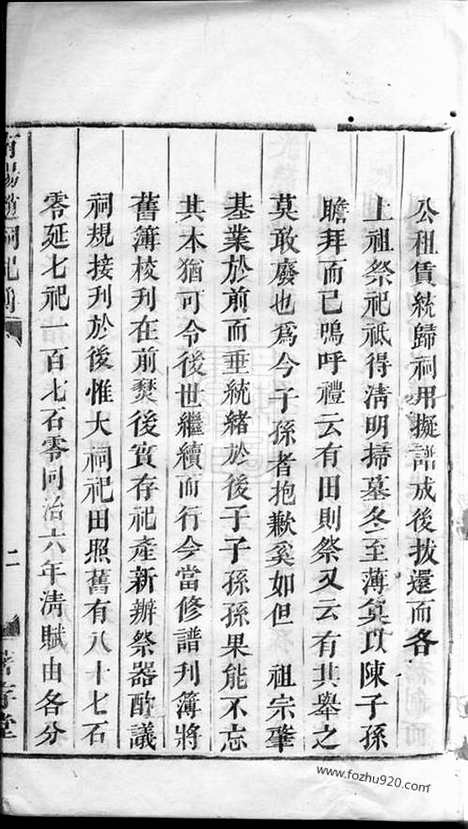 公租賃統歸祠用擬譜成後拔還而各
上祖祭祀祇得淸明掃墓冬至薄奠以陳子孫
瞻拜而已嗚呼禮云有田則祭又云有其舉之
莫敢廢也爲今子孫者抱歉奚如但 祖宗肇
基業於前而垂統緒於後子子孫孫果能不忘
其本猶可令後世繼續而行今當修譜刊簿將
舊簿校刊在前燹後實存祀產新辦祭器酌議
祠規接刊於後惟大祠祀田照舊有八十七石
零延七祀一百七石零同治六年淸賦由各分
二
www.fozhu920.com